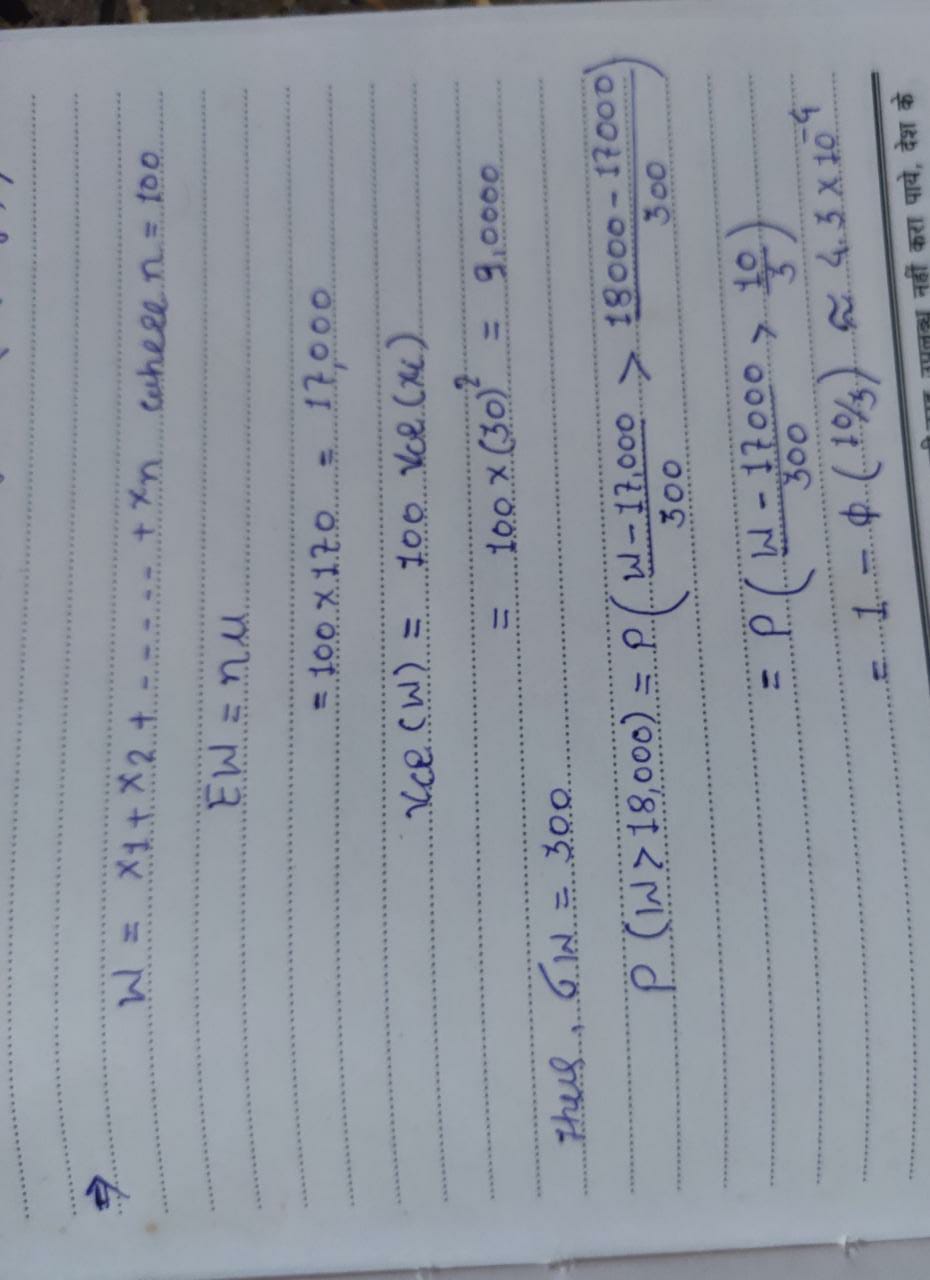 ⇒
W = x1 + x2 + - - - - - + xn where n = 100
EW = nμ
= 100 × 170 = 17,000
Var (W) = 100 Var (xi)
= 100 × (30)² = 9,0000
thus, σW = 300
P (W > 18,000) = P ( W - 17,000 / 300 > 18000 - 17000 / 300 )
= P ( W - 17000 / 300 > 10 / 3 )
= 1 - ϕ (10/3) ≈ 4.3 × 10⁻⁴
उपलब्ध नहीं करा पाये, देश के